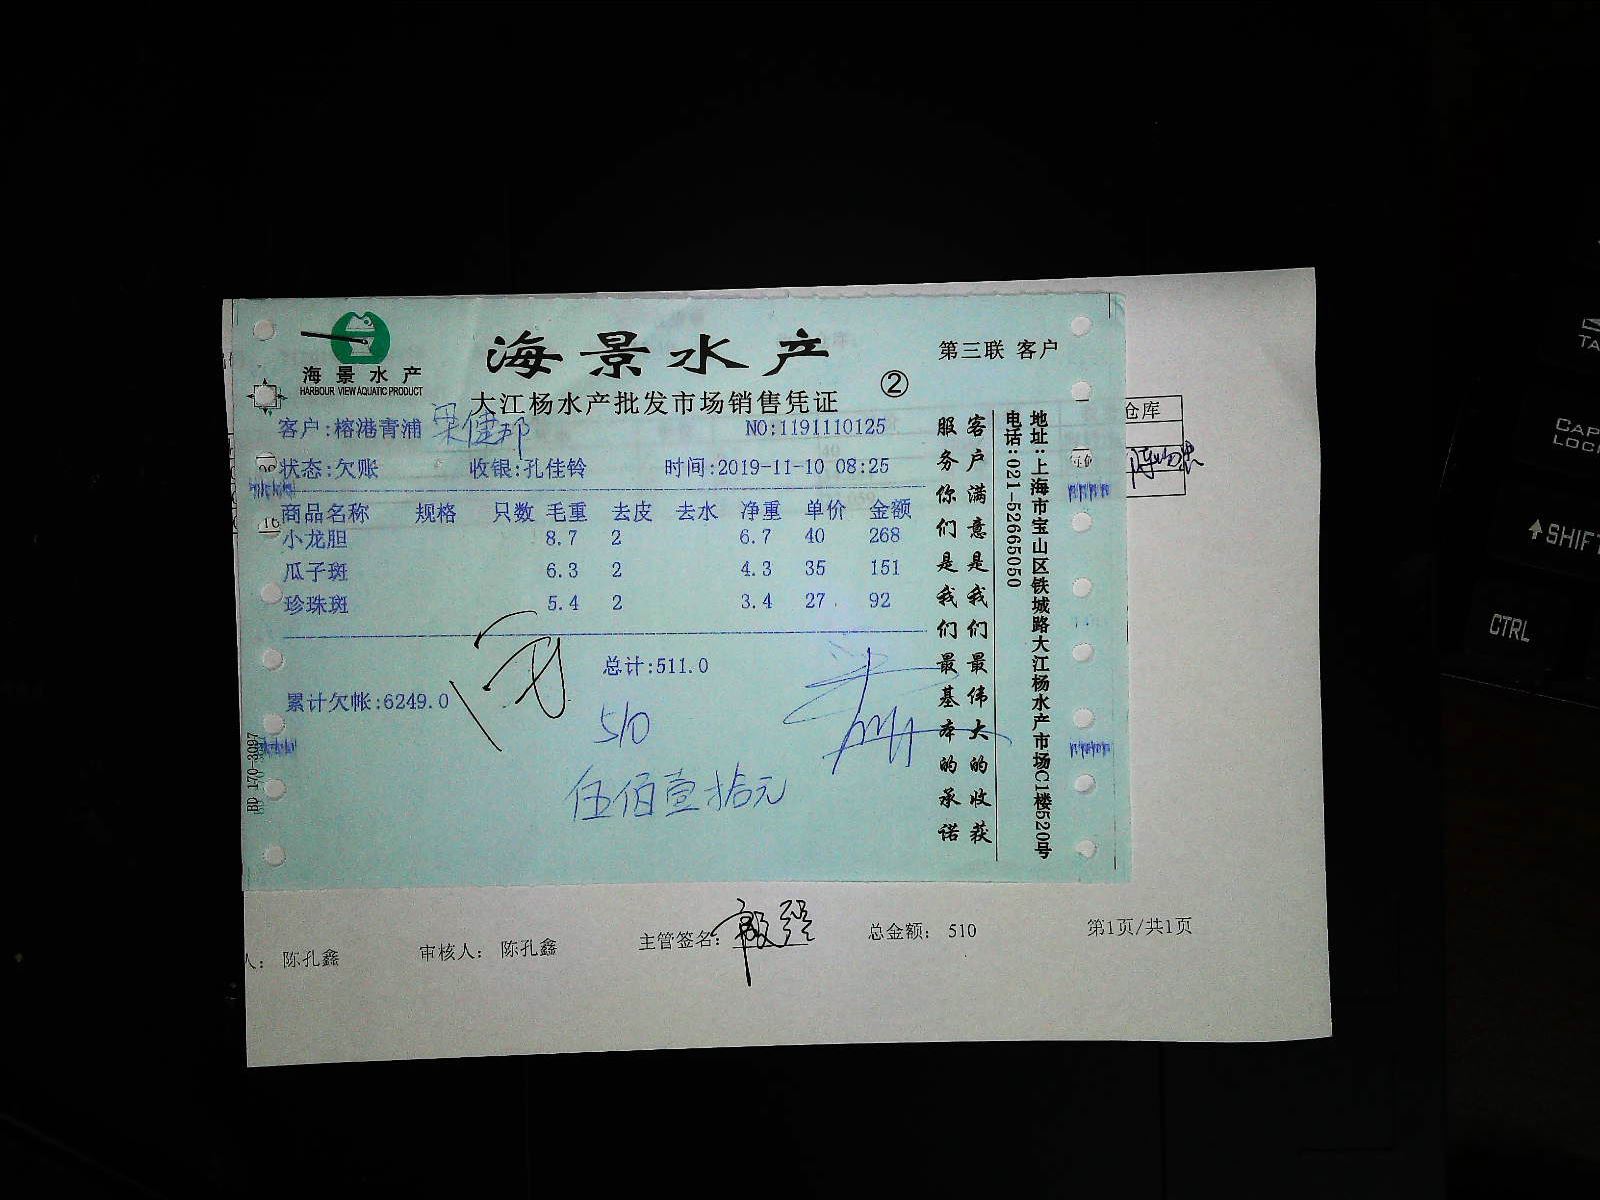 海景水产
HARBOUR VIEW AQUATIC PRODUCT
海景水产
第三联 客户
大江杨水产批发市场销售凭证
②
客户:榕港青浦 梁健邦
NO:1191110125
状态:欠账 收银:孔佳铃 时间:2019-11-10 08:25
商品名称 规格 只数 毛重 去皮 去水 净重 单价 金额
小龙胆 8.7 2 6.7 40 268
瓜子斑 6.3 2 4.3 35 151
珍珠斑 5.4 2 3.4 27 92
总计:511.0
累计欠帐:6249.0
510
伍佰壹拾元
客户满意是我们最伟大的收获
服务你们是我们最基本的承诺
地址:上海市宝山区铁城路大江杨水产市场C1楼520号
电话:021-52665050
BD 170-3097
仓库
人: 陈孔鑫 审核人: 陈孔鑫 主管签名: 总金额: 510 第1页/共1页
CAPS
LOCK
SHIFT
CTRL